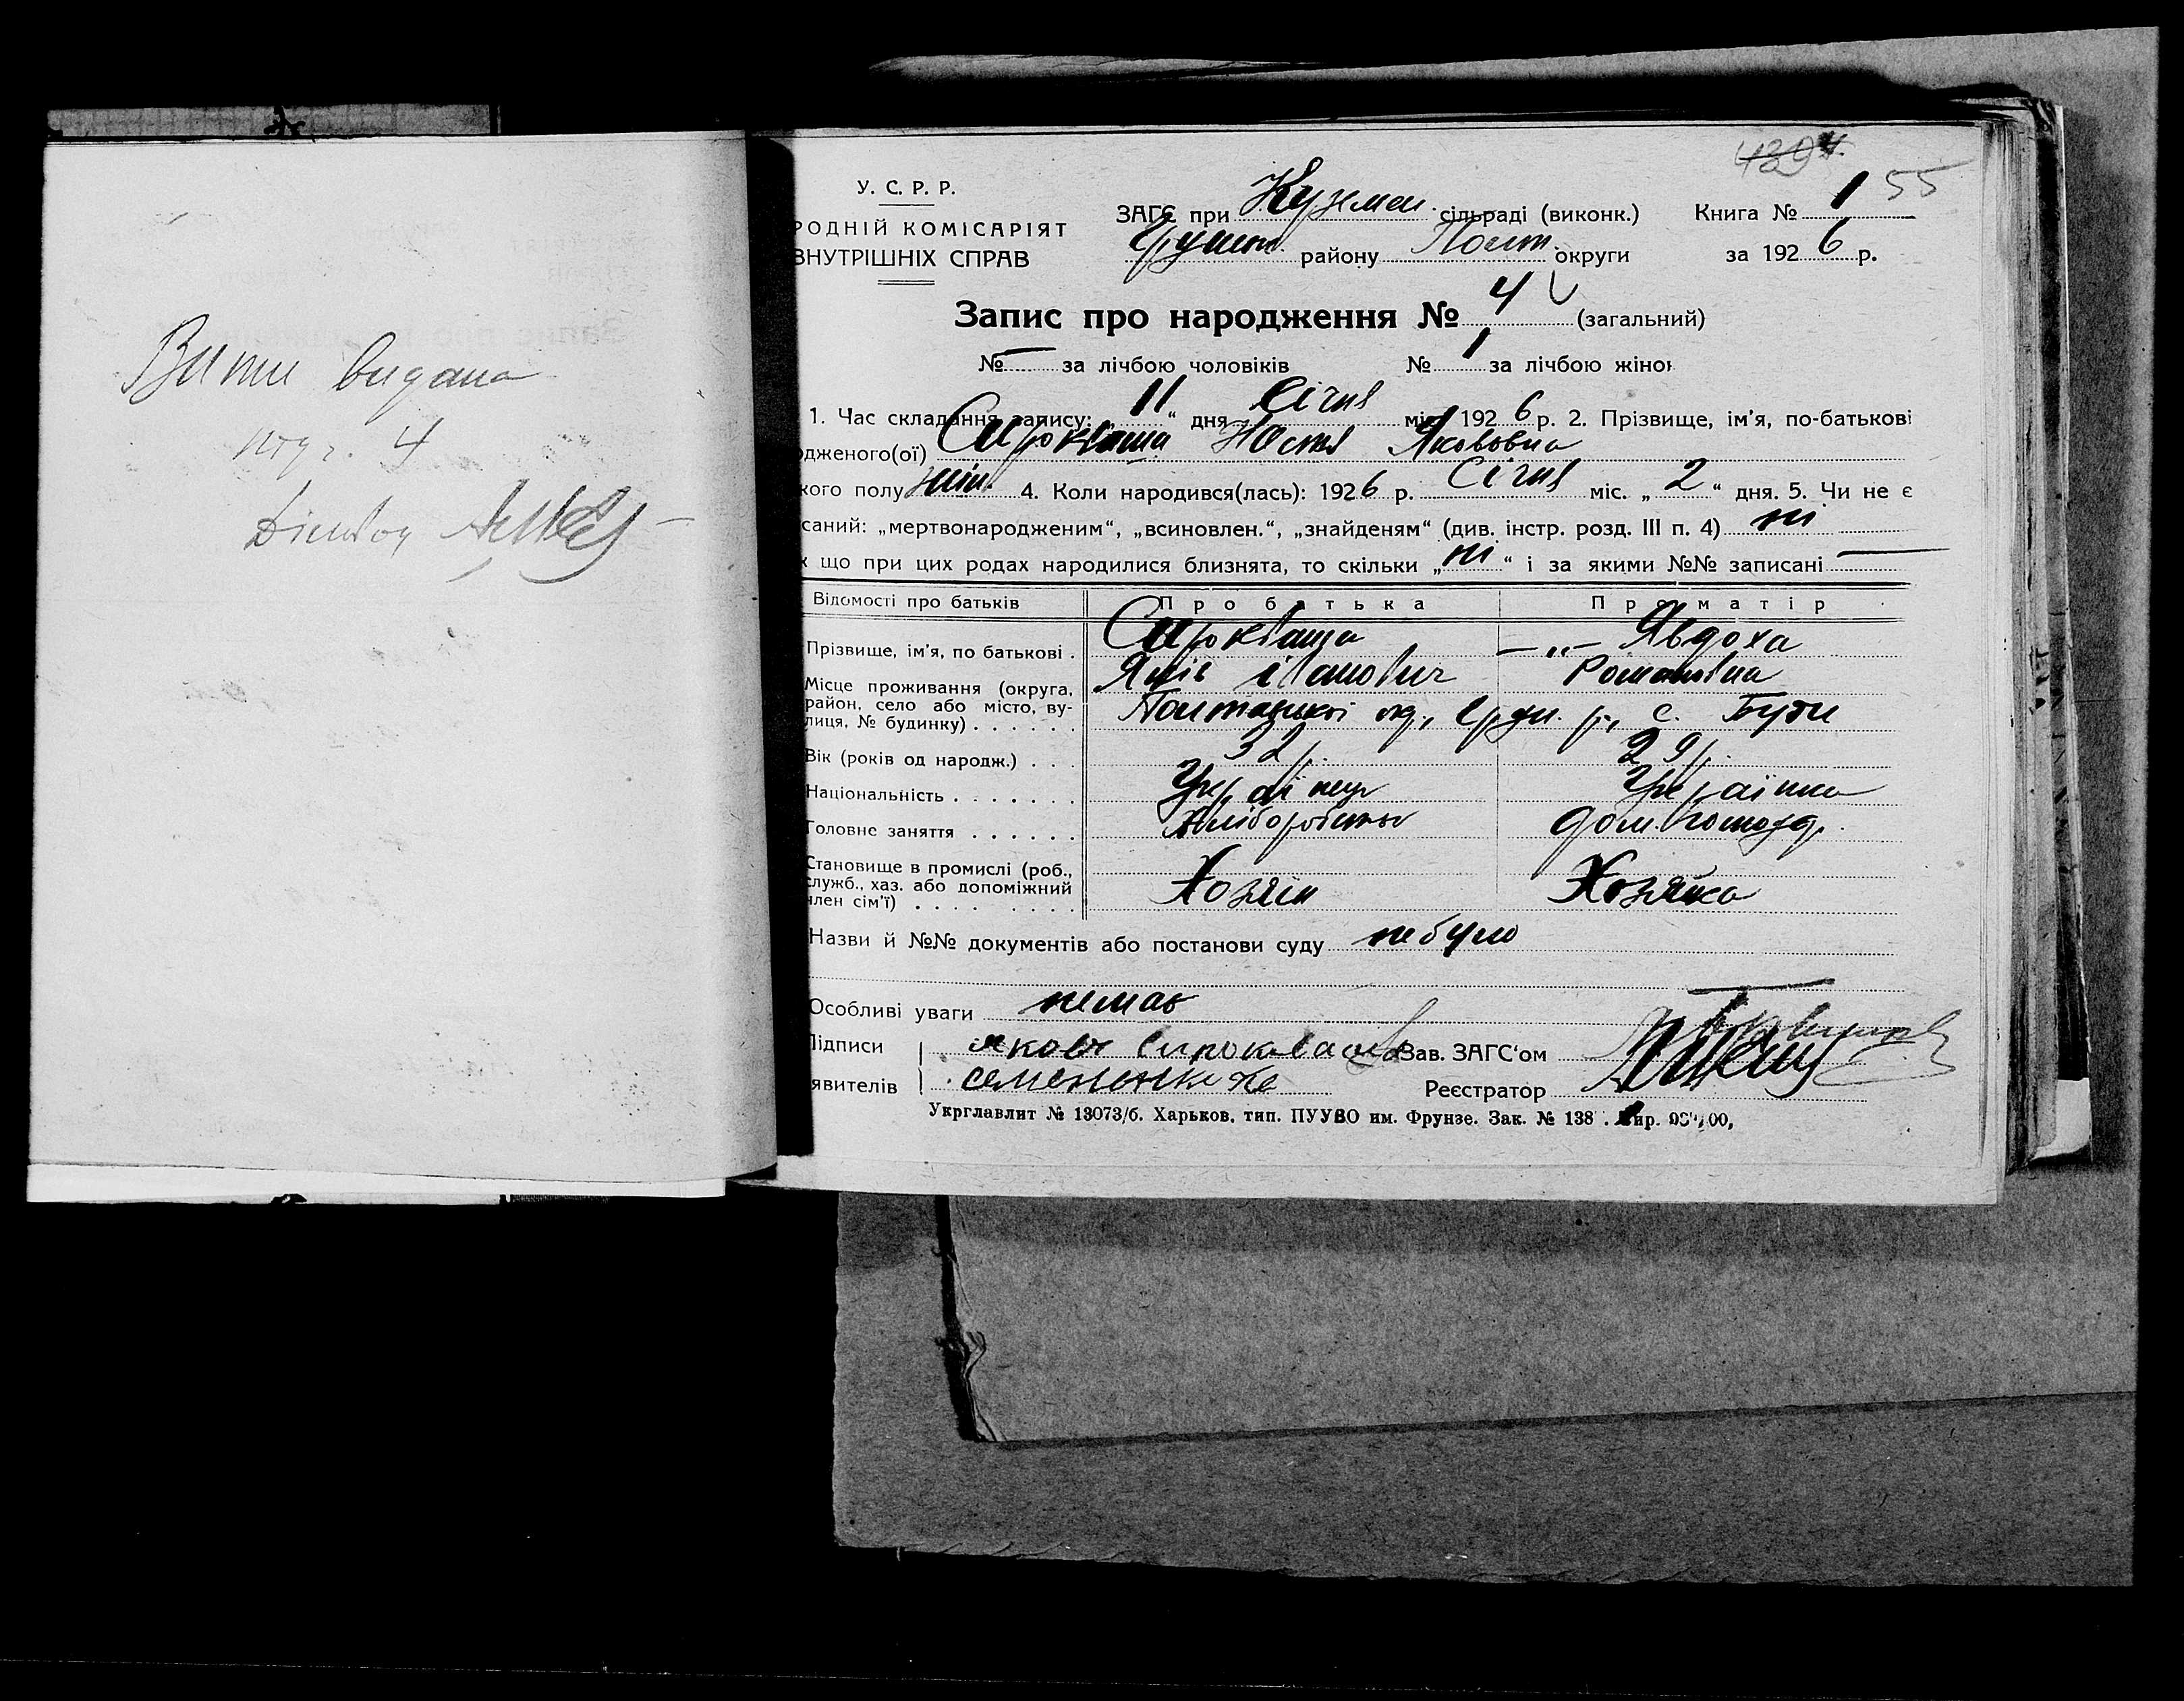 Витяг видана
4
4394.
55
У. С. Р. Р.
РОДНІЙ КОМІСАРІЯТ
ВНУТРІШНІХ СПРАВ
ЗАГС при Куземен. сільраді (виконк.)
Грунт. району Полт. округи
Книга № 1
за 1926 р.
Запис про народження № 4 (загальний)
№ — за лічбою чоловіків № 1 за лічбою жінок
1. Час складання запису: 11 “ дня Січня міс. 1926 р. 2. Прізвище, ім'я, по-батькові
дженого(ої) Сирокваша Настя Яковівна
кого полу жін. 4. Коли народився(лась): 1926 р. Січня міс. „ 2 “ дня. 5. Чи не є
саний: „мертвонародженим“, „всиновлен.“, „знайденям“ (див. інстр. розд. III п. 4) ні
що при цих родах народилися близнята, то скільки „ ні “ і за якими №№ записані —
Відомості про батьків Про батька Про матір
Прізвище, ім'я, по батькові . Сирокваша —„— Явдоха
Яків Іванович Романовна
Місце проживання (округа,
район, село або місто, ву-
лиця, № будинку) . . . . . . Полтавської окр., Грун. р., с. Бути
Вік (років од народж.) . . . 32 р. 29 р.
Національність . . . . . . . Українець Українка
Головне заняття . . . . . . Хліборобство дом. господ.
Становище в промислі (роб.,
служб., хаз. або допоміжний
член сім'ї) . . . . . . . . Хозяїн Хозяйка
Назви й №№ документів або постанови суду не було
Особливі уваги немає
Підписи яков Сирокваша Зав. ЗАГС'ом
явителів Реєстратор
Укрглавлит № 13073/б. Харьков, тип. ПУУВО им. Фрунзе. Зак. № 138